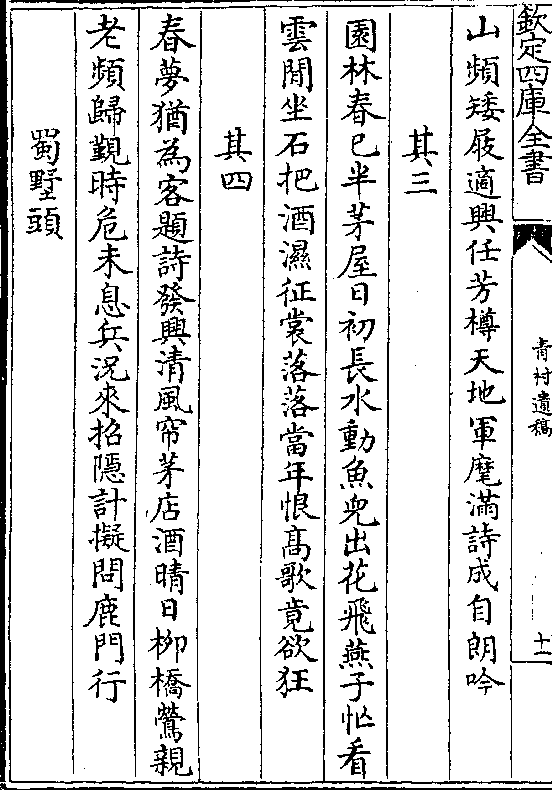 欽定四庫全書
青村遺稿
十一
山頻矮屐適興任芳樽天地軍麾滿詩成自朗吟
其三
園林春已半茅屋日初長水動魚兒出花飛燕子忙看
雲閒坐石把酒濕征裳落落當年恨高歌竟欲狂
其四
春夢猶為客題詩發興清風帘茅店酒晴日柳橋鶯親
老頻歸覲時危未息兵況來招隱計擬問鹿門行
蜀墅頭